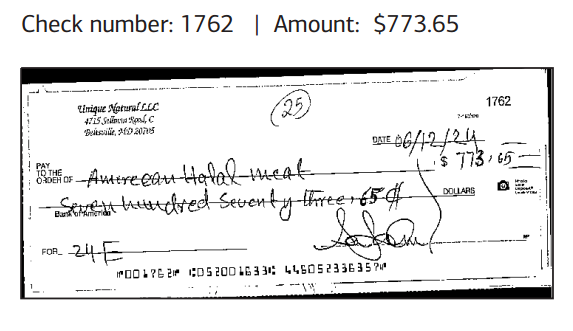 Check number: 1762 | Amount: $773.65
Unique Natural LLC
4715 Sellman Road, C
Beltsville, MD 20705
25
1762
DATE 06/12/24
PAY TO THE ORDER OF American Halal meat
$ 773.65
Seven hundred Seventy Three, 65 ¢ DOLLARS
Bank of America
FOR 24E
⑈001762⑈ ⑆052001633⑆ 446052336357⑈